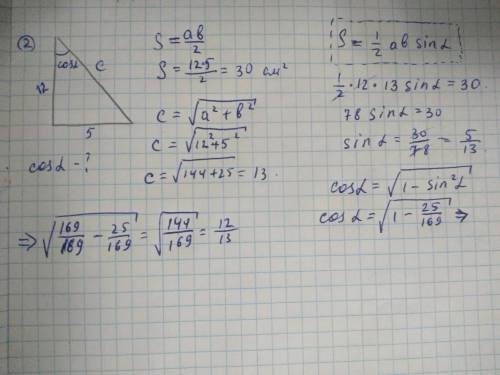 ②
cosα
c
12
5
cosα - ?
S = ab/2
S = 12·5/2 = 30 см²
c = √(a² + b²)
c = √(12² + 5²)
c = √(144 + 25) = 13.
S = 1/2 ab sinα
1/2 · 12 · 13 sinα = 30.
78 sinα = 30
sinα = 30/78 = 5/13.
cosα = √(1 - sin²α)
cosα = √(1 - 25/169) ⇒
⇒ √(169/169 - 25/169) = √(144/169) = 12/13